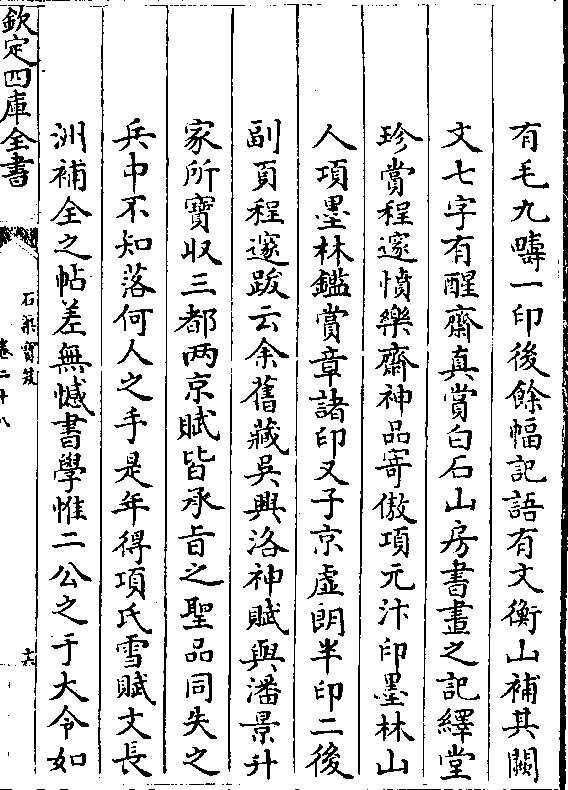 有毛九疇一印後餘幅記語有文衡山補其闕
文七字有醒齋真賞白石山房書畫之記繹堂
珍賞程邃憤樂齋神品寄傲項元汴印墨林山
人項墨林鑑賞章諸印又子京虛朗半印二後
副頁程邃跋云余舊藏吳興洛神賦與潘景升
家所寶収三都两京賦皆承旨之聖品同失之
兵中不知落何人之手是年得項氏雪賦文長
洲補全之帖差無憾書學惟二公之于大令如
欽定四庫全書
石渠寶笈
卷二十八
十六